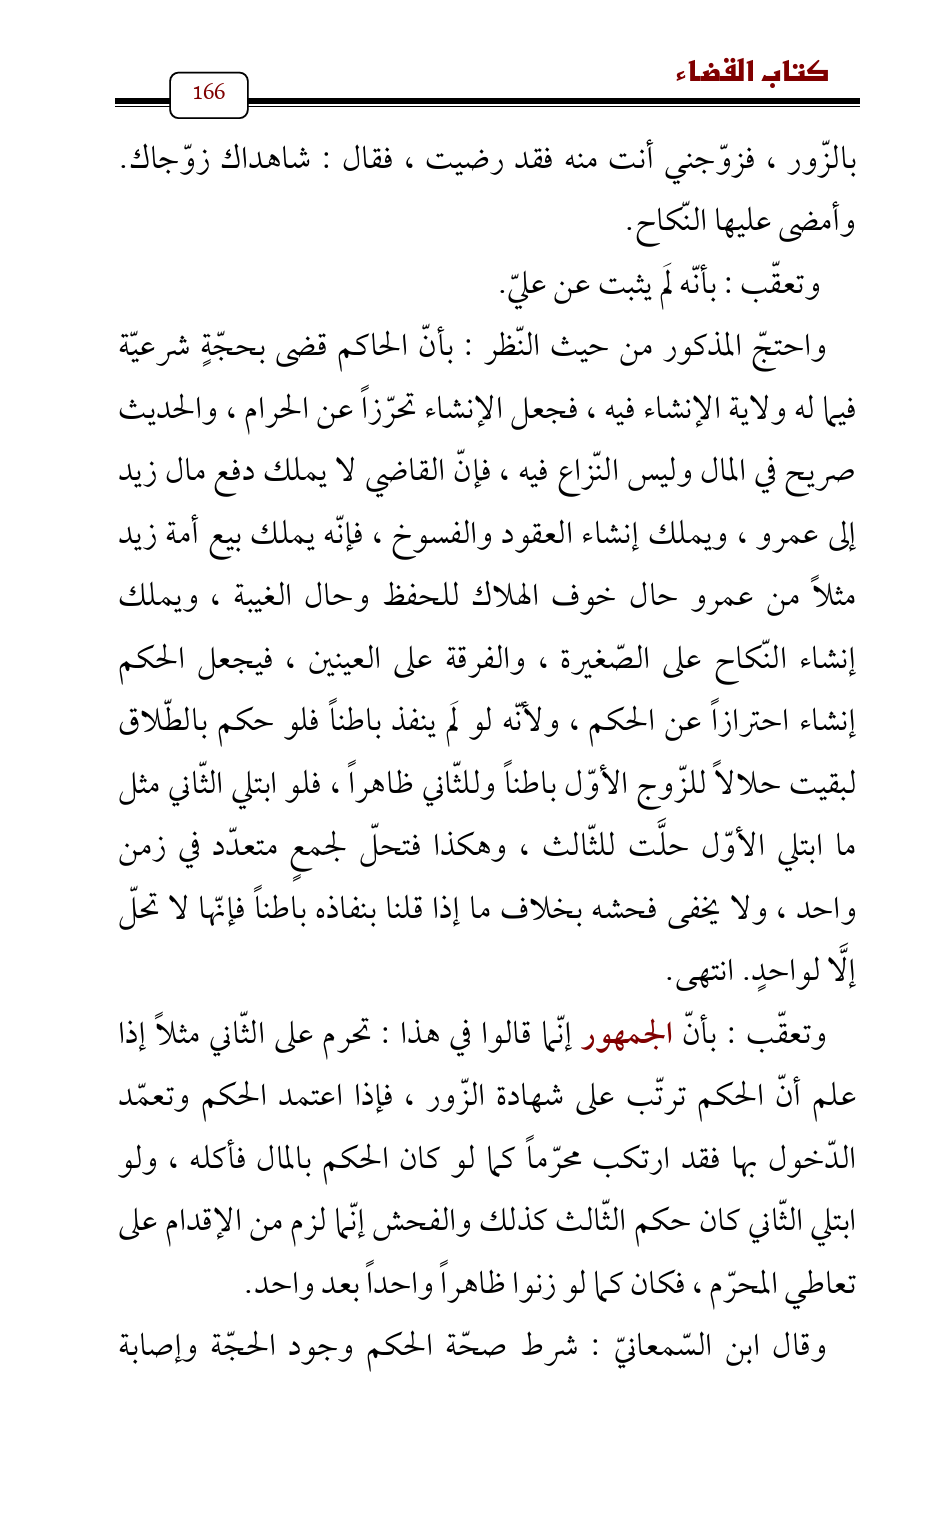 كتاب القضاء
166
بالزّور ، فزوّجني أنت منه فقد رضيت ، فقال : شاهداك زوّجاك.
وأمضى عليها النّكاح.
وتعقّب : بأنّه لَم يثبت عن عليّ.
واحتجّ المذكور من حيث النّظر : بأنّ الحاكم قضى بحجّةٍ شرعيّة
فيما له ولاية الإنشاء فيه ، فجعل الإنشاء تحرّزاً عن الحرام ، والحديث
صريح في المال وليس النّزاع فيه ، فإنّ القاضي لا يملك دفع مال زيد
إلى عمرو ، ويملك إنشاء العقود والفسوخ ، فإنّه يملك بيع أمة زيد
مثلاً من عمرو حال خوف الهلاك للحفظ وحال الغيبة ، ويملك
إنشاء النّكاح على الصّغيرة ، والفرقة على العينين ، فيجعل الحكم
إنشاء احترازاً عن الحكم ، ولأنّه لو لَم ينفذ باطناً فلو حكم بالطّلاق
لبقيت حلالاً للزّوج الأوّل باطناً وللثّاني ظاهراً ، فلو ابتلي الثّاني مثل
ما ابتلي الأوّل حلَّت للثّالث ، وهكذا فتحلّ لجمعٍ متعدّد في زمن
واحد ، ولا يخفى فحشه بخلاف ما إذا قلنا بنفاذه باطناً فإنّها لا تحلّ
إلَّا لواحدٍ. انتهى.
وتعقّب : بأنّ الجمهور إنّما قالوا في هذا : تحرم على الثّاني مثلاً إذا
علم أنّ الحكم ترتّب على شهادة الزّور ، فإذا اعتمد الحكم وتعمّد
الدّخول بها فقد ارتكب محرّماً كما لو كان الحكم بالمال فأكله ، ولو
ابتلي الثّاني كان حكم الثّالث كذلك والفحش إنّما لزم من الإقدام على
تعاطي المحرّم ، فكان كما لو زنوا ظاهراً واحداً بعد واحد.
وقال ابن السّمعانيّ : شرط صحّة الحكم وجود الحجّة وإصابة